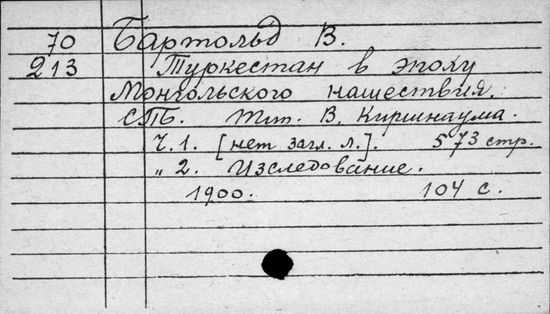 70 Бартольд В.
213 Туркестан в эпоху
Монгольского нашествия.
СПБ. Тип. В. Киршнаума.
Ч. 1. [нет загл. л.]. 573 стр.
„ 2. Изследование.
1900. 104 с.